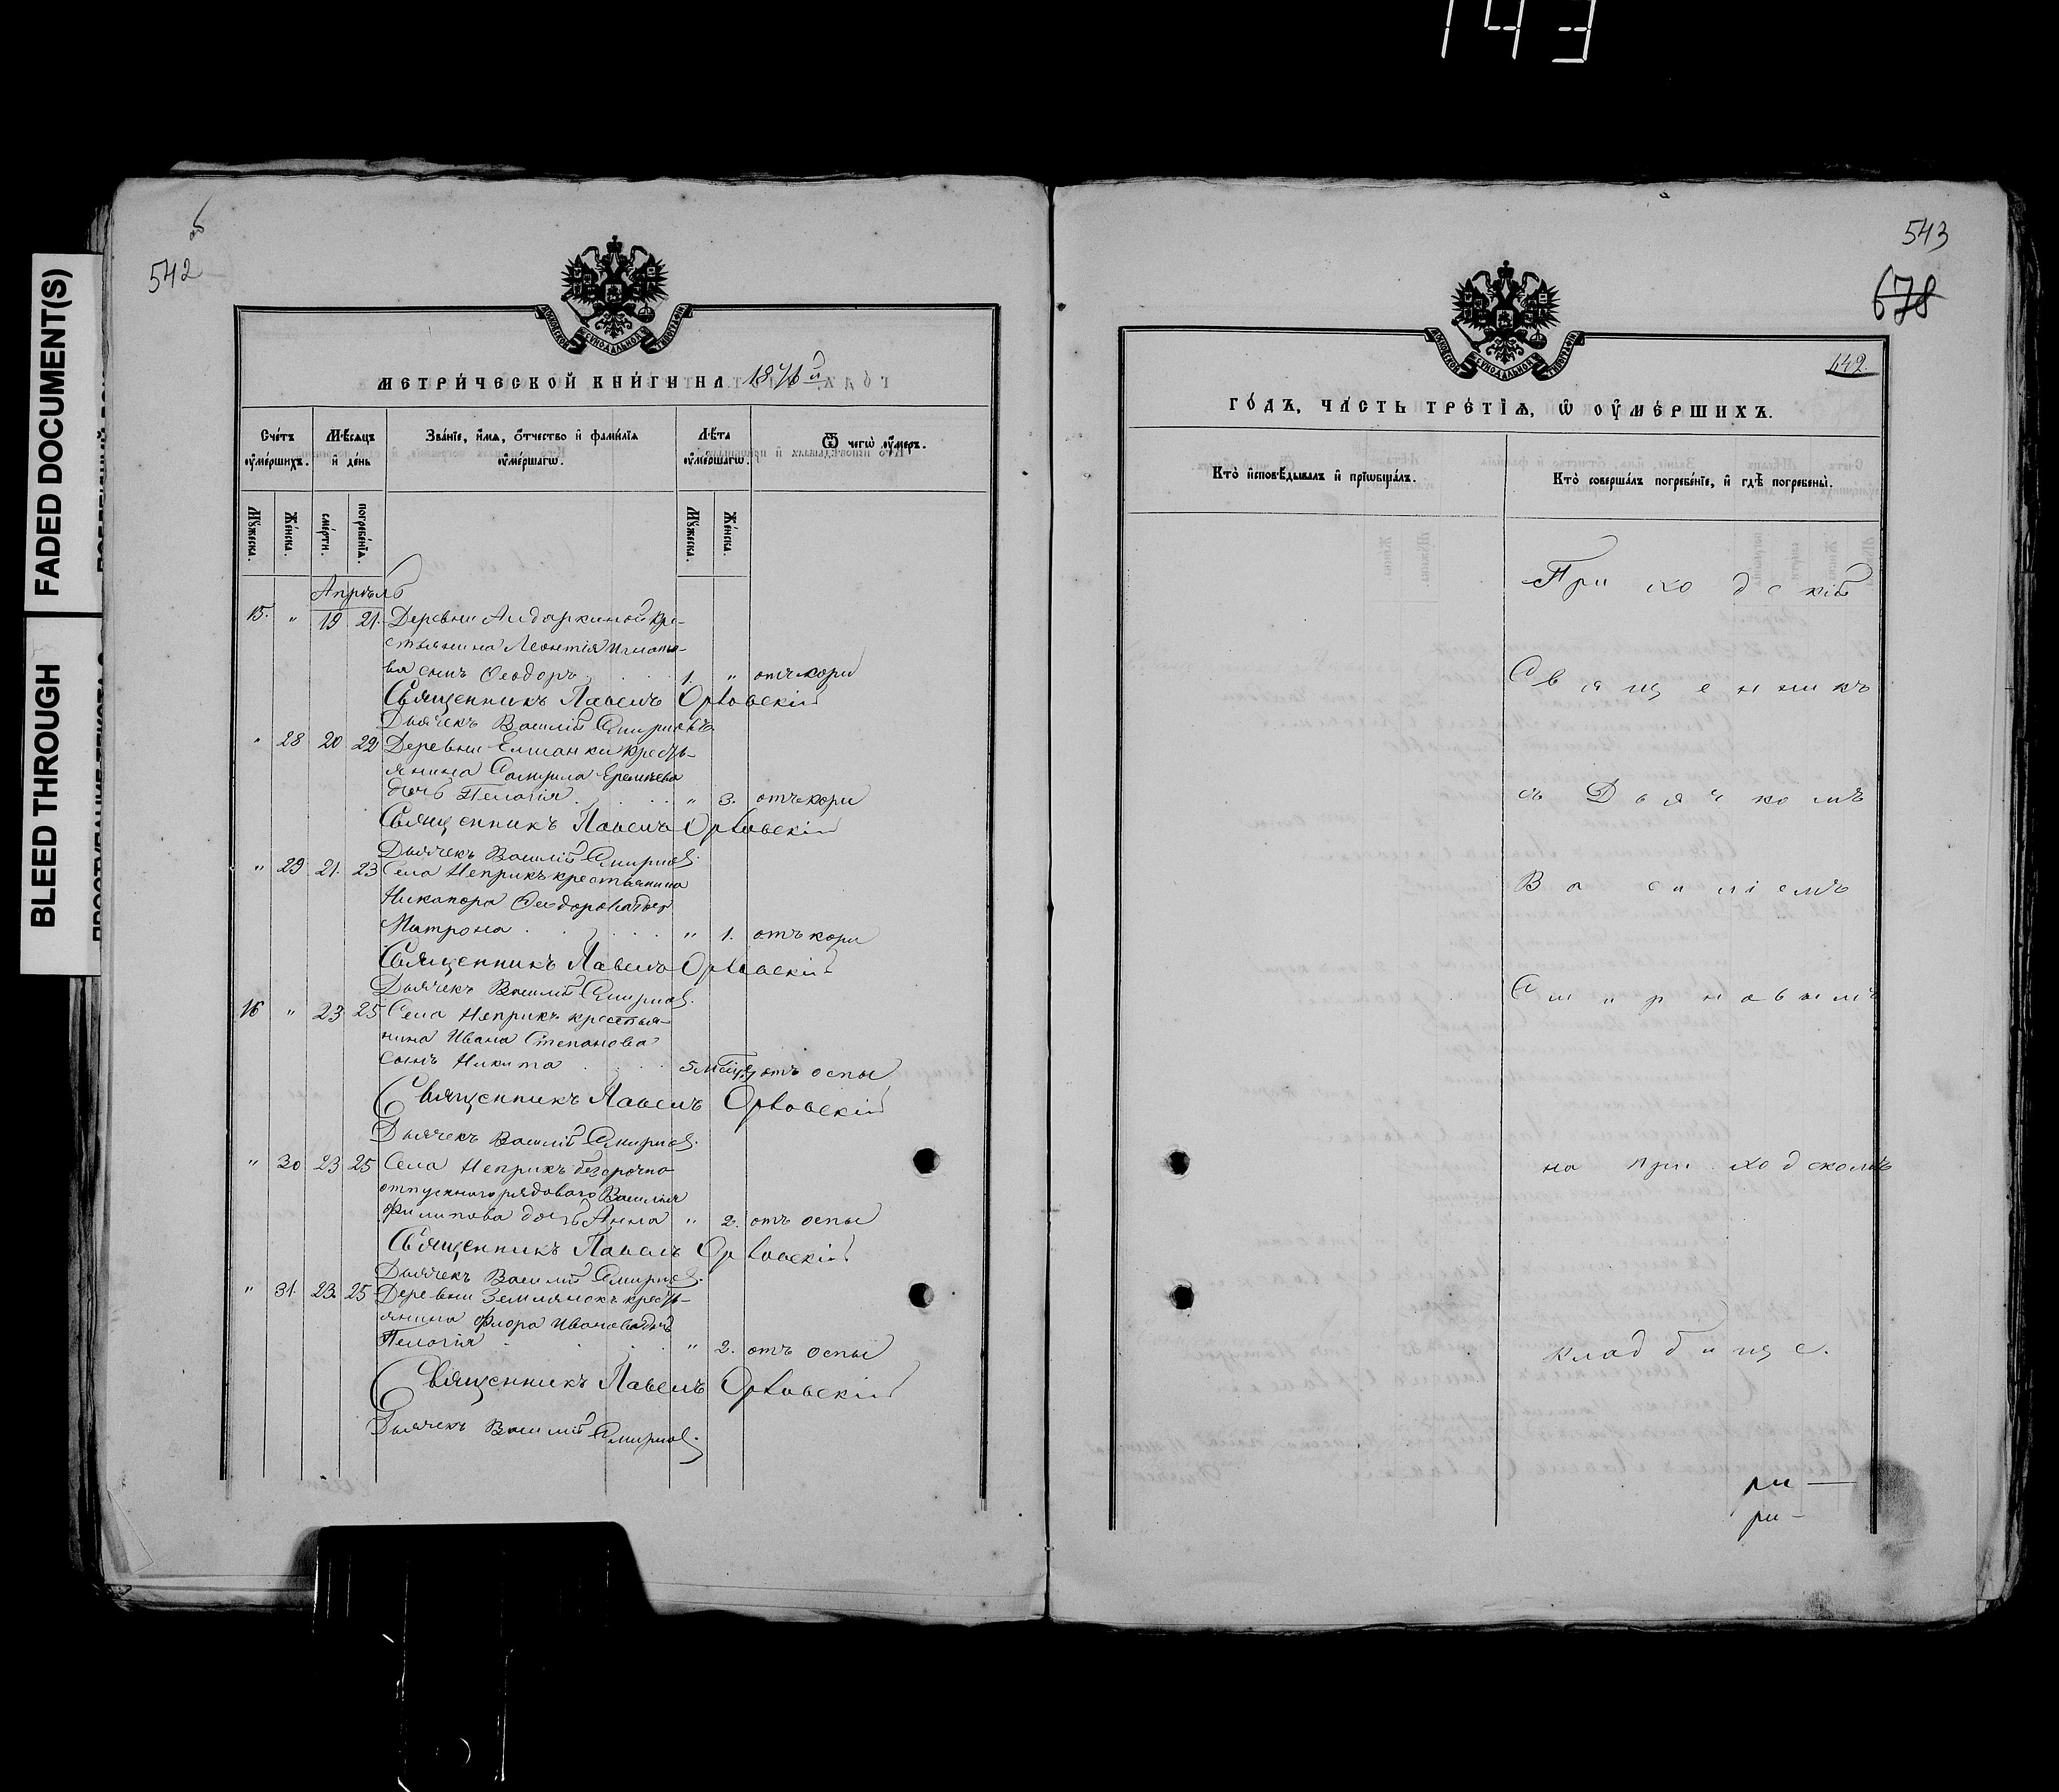 143
BLEED THROUGH
FADED DOCUMENT(S)
542
МЕТРИЧЕСКОЙ КНИГИ НА 1871й
Счетъ умершихъ.
Мѣсяцъ и день
Званіе, имя, отчество и фамилія умершагѡ.
Лѣта умершагѡ.
Ѿ чегѡ умеръ.
Мужеска.
Женска.
смерти.
погребенїѧ.
Мужеска.
Женска.
Апрѣль
15. " 19 21. Деревни Алдаркиной кре-
стьянина Леонтія Игнать-
ва сынъ Ѳеодоръ 1. " отъ кори
Священникъ Павелъ Орловскій
Дьячекъ Василій Смирновъ
" 28 20 22 Деревни Елшанки кресть-
янина Гаврила Еремеева
дочь Пелагія 3. отъ кори
Священникъ Павелъ Орловскій
Дьячекъ Василій Смирновъ.
" 29 21. 23 Села Неприкъ крестьянина
Никанора Ѳеодорова дочь
Матрона " 1. отъ кори
Священникъ Павелъ Орловскій
Дьячекъ Василій Смирновъ.
16 " 23 25 Села Неприкъ крестья-
нина Ивана Степанова
сынъ Никита 5 мѣсяц. отъ оспы
Священникъ Павелъ Орловскій
Дьячекъ Василій Смирновъ.
" 30 23 25 Села Неприкъ безсрочно
отпускного рядового Василія
Филипова дочь Анна " 2. отъ оспы
Священникъ Павелъ Орловскій
Дьячекъ Василій Смирновъ.
" 31. 23. 25 Деревни Землянокъ кресть-
янина Флора Иванова дочь
Пелагія " 2. отъ оспы
Священникъ Павелъ Орловскій
Дьячекъ Василій Смирновъ.
543
678
442
ГОДЪ, ЧАСТЬ ТРЕТІѦ, Ѡ УМЕРШИХЪ.
Кто исповѣдывалъ и прїѡбщалъ.
Кто совершалъ погребенїе, и гдѣ погребены.
Приходскій
Священникъ
съ Дьячкомъ
Василіемъ
Смирновымъ
на приходскомъ
кладбище.